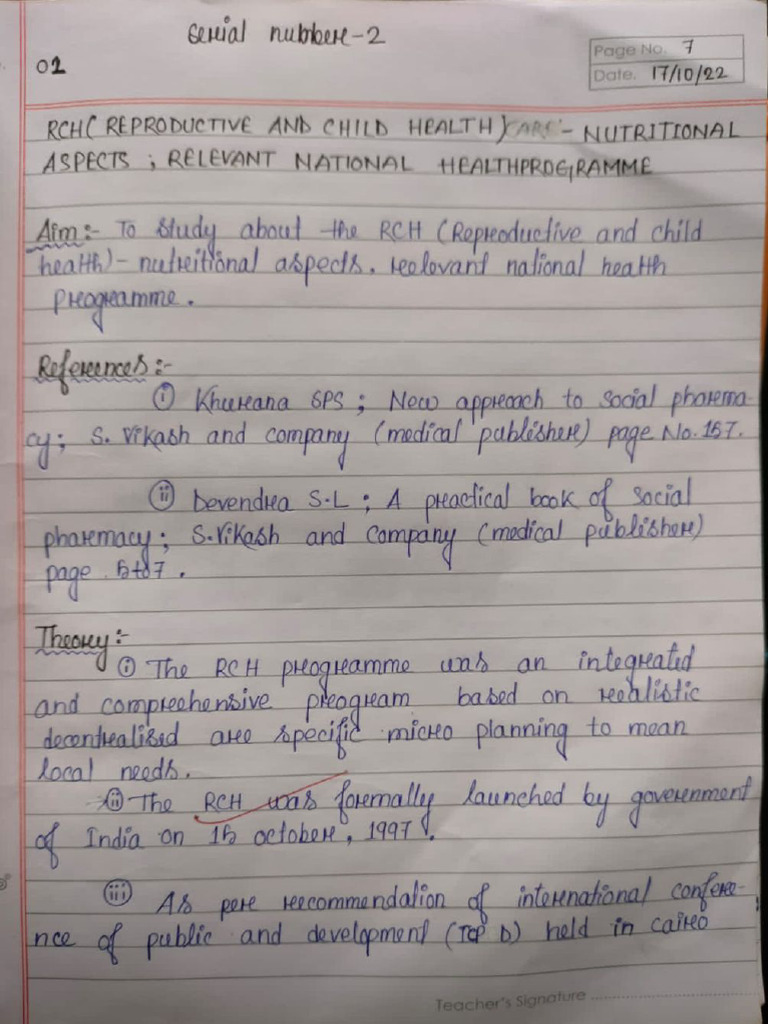 serial number-2
02
Page No. 7
Date. 17/10/22
RCH( REPRODUCTIVE AND CHILD HEALTH) CARE - NUTRITIONAL
ASPECTS ; RELEVANT NATIONAL HEALTHPROGRAMME
Aim:- To study about the RCH (Reproductive and child
health)- nutritional aspects. relovant national health
programme.
References:-
(i) Khurana SPS ; New approach to social pharma-
cy; S. Vikash and company (medical publisher) page No. 157.
(ii) Devendra S-L ; A practical book of social
pharmacy; S.Vikash and company (medical publisher)
page 5to7.
Theory:-
(i) The RCH programme was an integrated
and comprehensive program based on realistic
decentralised are specific micro planning to mean
local needs.
(ii) The RCH was formally launched by government
of India on 15 october, 1997.
(iii) As per recommendation of international confere-
nce of public and development (ICP D) held in cairo
Teacher's Signature